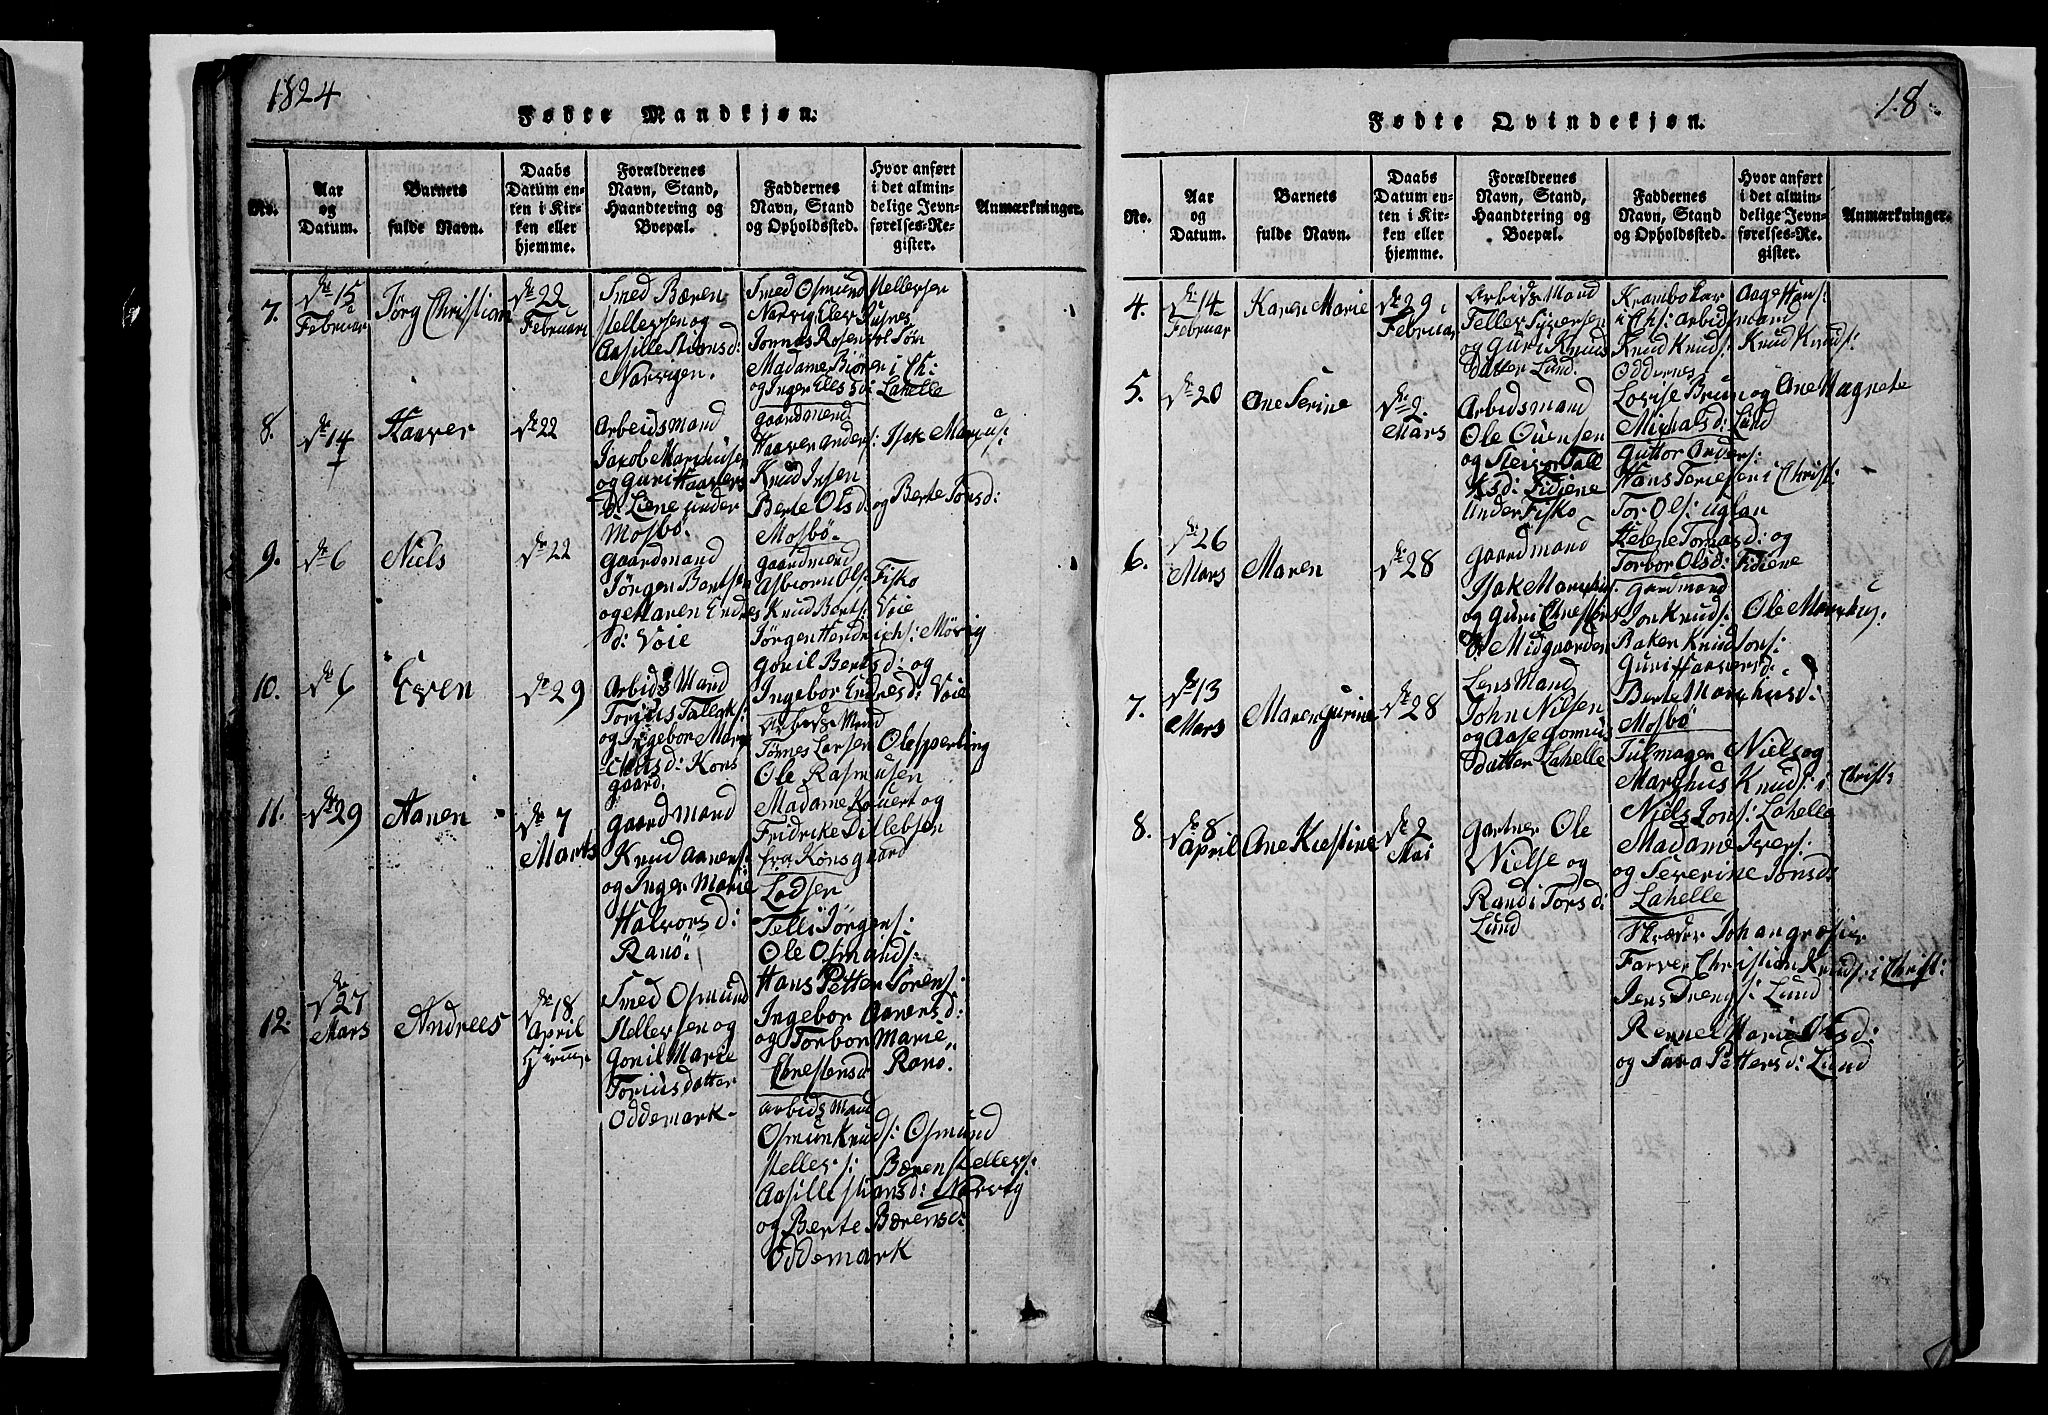 1824
Fødte Mandkjøn.
No.
Aar
og
Datum.
Barnets
fulde Navn.
Daabs
Datum en-
ten i Kir-
ken eller
hjemme.
Forældrenes
Navn, Stand,
Haandtering og
Boepæl.
Faddernes
Navn, Stand
og Opholdssted.
Hvor anført
i det almin-
delige Jevn-
førelses-Re-
gister.
Anmærkninger.
7.
15
Februar
Jörg Christian
22
Februari
Smed Bæren
Stellersen og
Aasille Stiansd:
Narvigen.
Smed Osmund Stellersen
Narvig
Jonnas Rosen
Madame Biören i Ch:
og Inger Elesd: Lahelle
8.
14
Haaver
22
Arbeidsmand
Jacob Marchusen
og Guri Haavers
D: Liene under
Mosbø.
Gaardmend
Haaver Anders: Isak Marcus:
Knud Jnsen
Berte Olsd: og Berte Torsd:
Mosbø.
9.
6
Niels
22
Gaardmand
Jörgen Bartsen
og Maren Endres
d: Voie
Gaardmend
Asbiorn Ols: Fisko
Knud Borts: Voie
Jörgen Hendrichs: Møvig
Goril Bertsd: og
Ingebor Endresd: Voie
10.
6
Even
29
Arbids Mand
Torius Tallaks:
og Ingebor Mar
chusd: Kons
gaard.
Arbeds Mand
Tørnes Larsen Ole Sperling
Ole Rasmusen
Madame Kouert og
Fridrike Ditlebsen
fra Kønsgaard
11.
29
Aanen
7
Marts
Gaardmand
Knud Aanens:
og Inger Marie
Halvorsd:
Ranø.
Lodsen
Telli Jörgens:
Ole Osmands:
Hans Petter Sörens:
Ingebor Aanersd:
og Torbor Marie
Chrestensd Ranø.
12.
27
Mars
Andrees
18
April
Smed Osmund
Stellersen og
Goril Marie
Toriusdatter
Oddemark-
Arbids Mand
Osmun Knuds: Osmund
Stellers: Bæren Stellers:
Aasille Stiansd: Narvig
og Berte Bærensd:
Oddemark
18
Fødte Qvindekjøn.
No.
Aar
og
Datum.
Barnets
fulde Navn.
Daabs
Datum en-
ten i Kir-
ken eller
hjemme.
Forældrenes
Navn, Stand,
Haandtering og
Boepæl.
Faddernes
Navn, Stand
og Opholdssted.
Hvor anført
i det almin-
delige Jevn-
førelses-Re-
gister.
Anmærkninger.
4.
14
Februar
Karen Marie
29
Februar
Arbids Mand
Tellev Syversen
og Guri Knuds
datter Lund.
Krambokar Aage Hans:
i Chs: Arbidsmand
Knud Knuds: Knud Knuds:
Oddernes
Lovise Brun og Ane Magnete
Michalsd: Lund
5.
20
Ane Serine
2
Mars
Arbidsmand
Ole Ouensen
og Steivor Tall
aksd: Fidiene
under Fisko
Guttor Anders:
Hans Teriesen i Christ:
Tor Ols: Uglan
Helene Tomasd: og
Torbor Olsd: Fidiene
6.
26
Mars
Maren
28
Gaardmand
Isak Marchus
og Guri Chrestens
d: Midgaarden
Gaardmand
Jon Knuds: Ole Marchus:
Baker Knud Jons:
Guri Haaversd:
Berte Marchusd:
Mosbø
7.
13
Mars
Maren Gurine
28
Lens Mand
John Nilsen
og Aase Gonnus
datter Lahelle
Tulmager Niels og
Marchus Knuds: i Christ:
Niels Jons: Lahelle
Madame Ivers:
og Severine Jonsd:
Lahelle
8.
8
April
Ane Kiestine
2
Mai
Gartner Ole
Nielse og
Randi Torsd:
Lund
Skreder Johan Grøsier
Farver Christian Knuds: i Christ:
Jens Drengs: Lund
Rennel Marie Olsd:
og Sara Pettersd: Lund